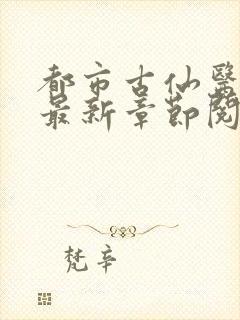 都市古仙醫
最新章節閱
梵辛